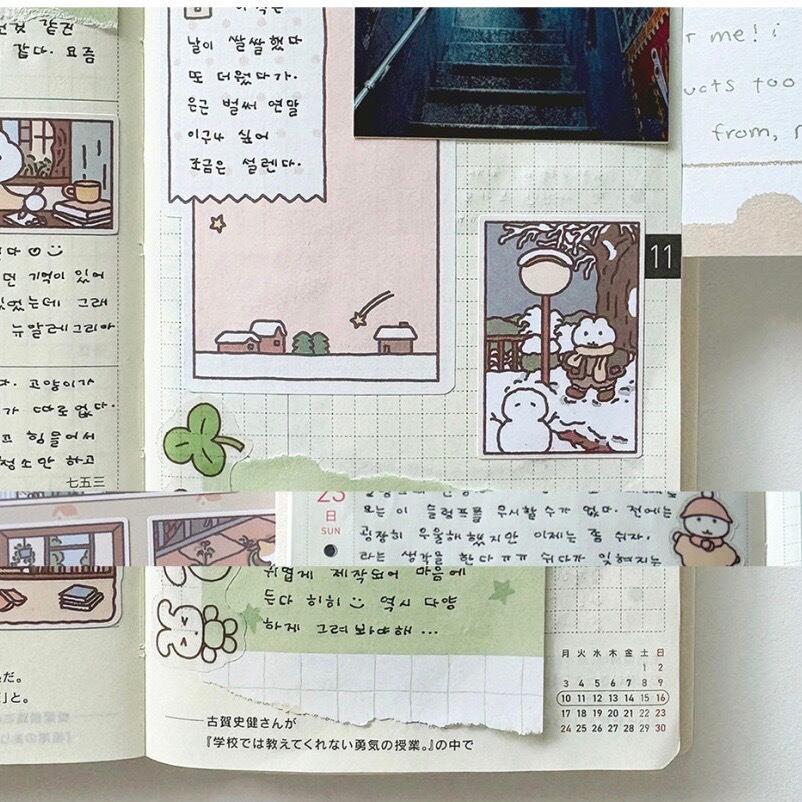 같다. 요즘
날이 쌀쌀했다
또 더웠다가.
은근 벌써 연말
이구나 싶어
조금은 설렌다.
r me! i
ucts too
from, m
11
던 기억이 있어
있었는데 그래
뉴알레그리아
다. 고양이가
가 따로 없다.
고 힘들어서
청소만 하고
七五三
23
日
SUN
오는 이 슬럼프를 무시할 수가 없다. 전에는
굉장히 우울해 했지만 이제는 좀 쉬자.
라는 생각을 한다 ㄲㄲ 쉬다가 잊혀지는
귀엽게 제작되어 마음에
든다 히히 역시 다양
하게 그려 봐야해 ...
んだ。
」と。
月 火 水 木 金 土 日
1 2
3 4 5 6 7 8 9
10 11 12 13 14 15 16
17 18 19 20 21 22 23
24 25 26 27 28 29 30
古賀史健さんが
『学校では教えてくれない勇気の授業。』の中で